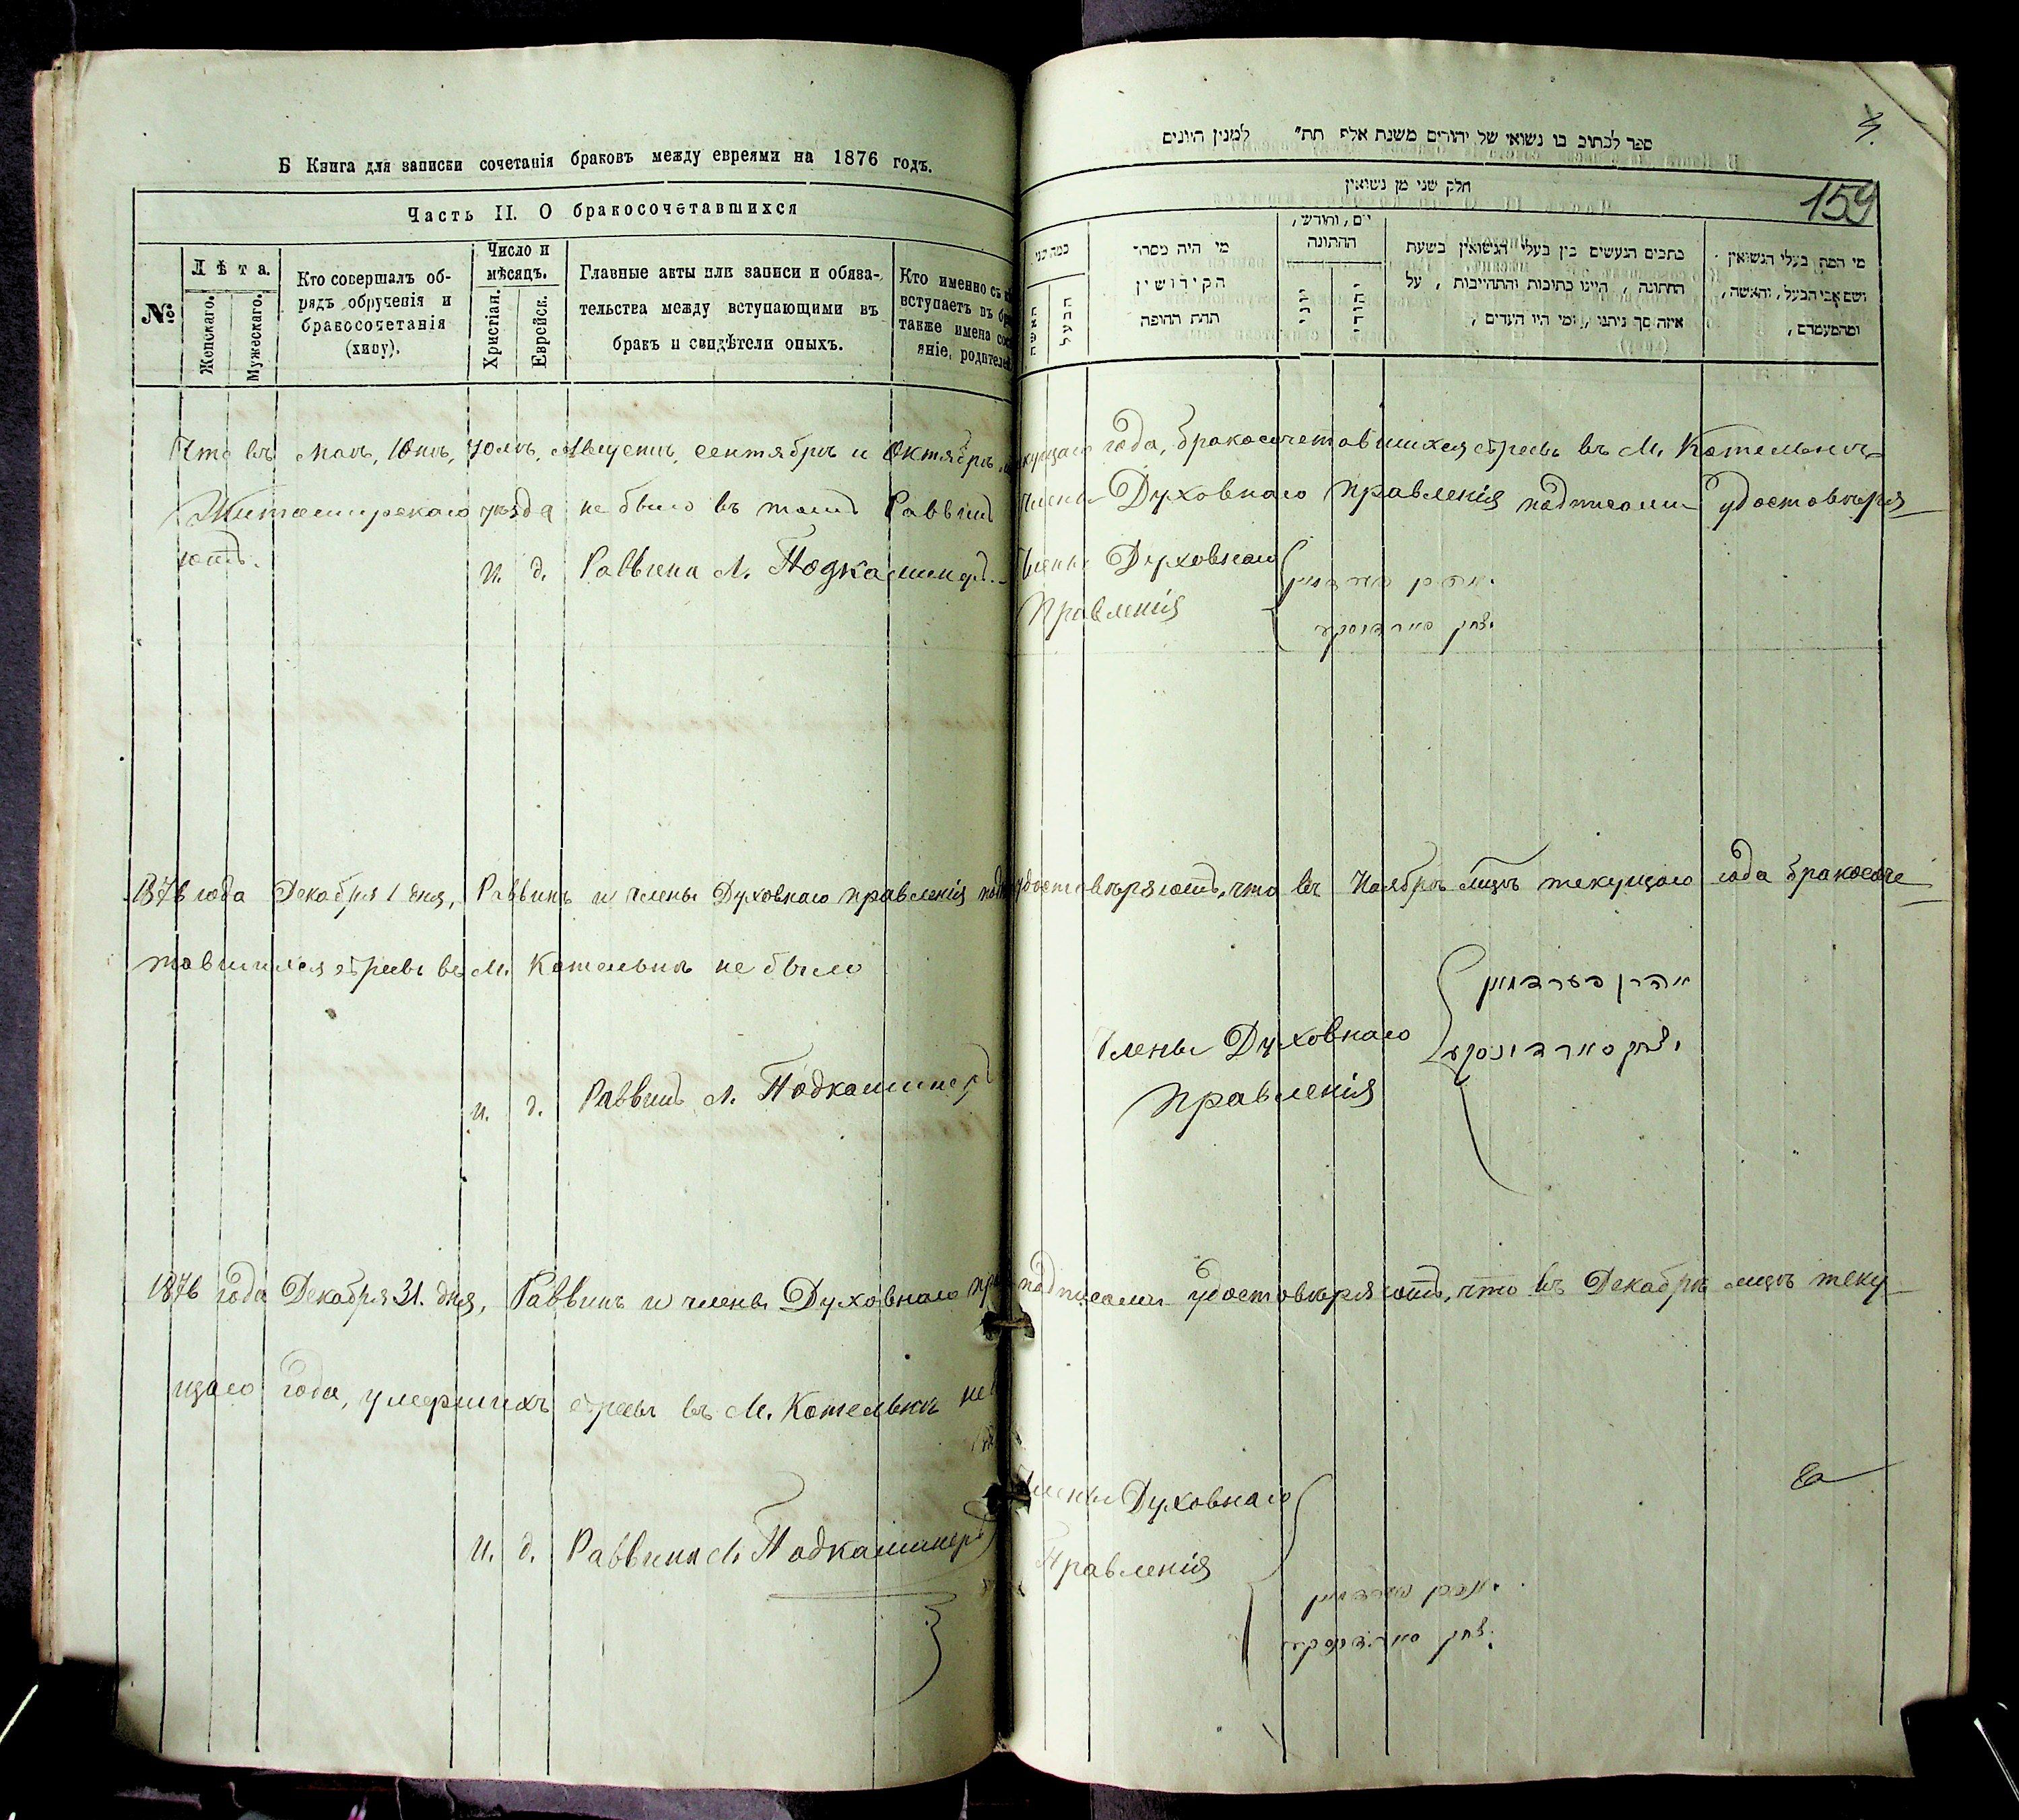 Б Книга для записки сочетанія браковъ между евреями на 1876 годъ.
Часть II. О бракосочетавшихся
№
Лѣта.
Женскаго.
Мужескаго.
Кто совершалъ об-
рядъ обрученія и
бракосочетанія
(хипу).
Число и
мѣсяцъ.
Христіан.
Еврейск.
Главные акты или записи и обяза-
тельства между вступающими въ
бракъ и свидѣтели оныхъ.
Кто именно съ
вступаетъ въ
также имена
яніе, родителей
ספר לכתוב בו נשואי של יהודים משנת אלף תת״ למנין היונים
159
חלק שני מן נשואין
כמה שני
האשה
הבעל
מי היה מסדר
הקידושין
תחת החופה
יום, וחודש,
החתונה
יוני
יהודי
כתבים הנעשים בין בעלי הנשואין בשעת
החתונה, היינו כתובות והתחייבות, על
איזה סך ניתנו, ומי היו העדים,
מי המה בעלי הנשואין
ושם אבי הבעל, והאשה,
ומהמעמדם,
Что въ Маѣ, Юнѣ, Юлѣ, Августѣ, Сентябрѣ и Октябрѣ кущаго года, бракосочетавшихся евреевъ въ М. Котельнѣ
Житомирскаго уѣзда не было въ томъ Раввинъ члены Духовнаго Правленія подписами удостовѣря
ютъ.
и. д. Раввина Л. Подкаминеръ. Члены Духовнаго
Правленія
אהרן
יצחק
1876 года Декабря 1 дня, Раввинъ и члены Духовнаго правленія удостовѣряютъ, что въ Ноябрѣ мцѣ текущаго года бракосоче
тавшихся евреевъ въ М. Котельнѣ не было
אהרן
Члены Духовнаго
יצחק
Правленія
и. д. Раввинъ Л. Подкаминеръ
1876 года Декабря 31. дня, Раввинъ и члены Духовнаго подписами удостовѣряютъ, что въ Декабрѣ мцѣ теку
щаго года, умершихъ евреевъ въ М. Котельнѣ не
Члены Духовнаго
и. д. Раввина Л. Подкаминеръ
Правленія
אהרן
יצחק